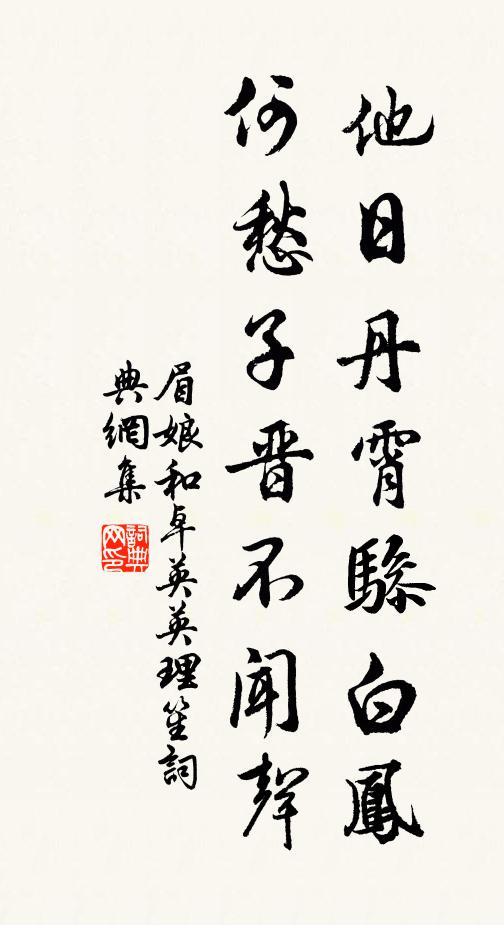 他日丹霄驂白鳳
何愁子晋不聞聲
眉娘和卓英英理笙詞
典網集
詞典
网印